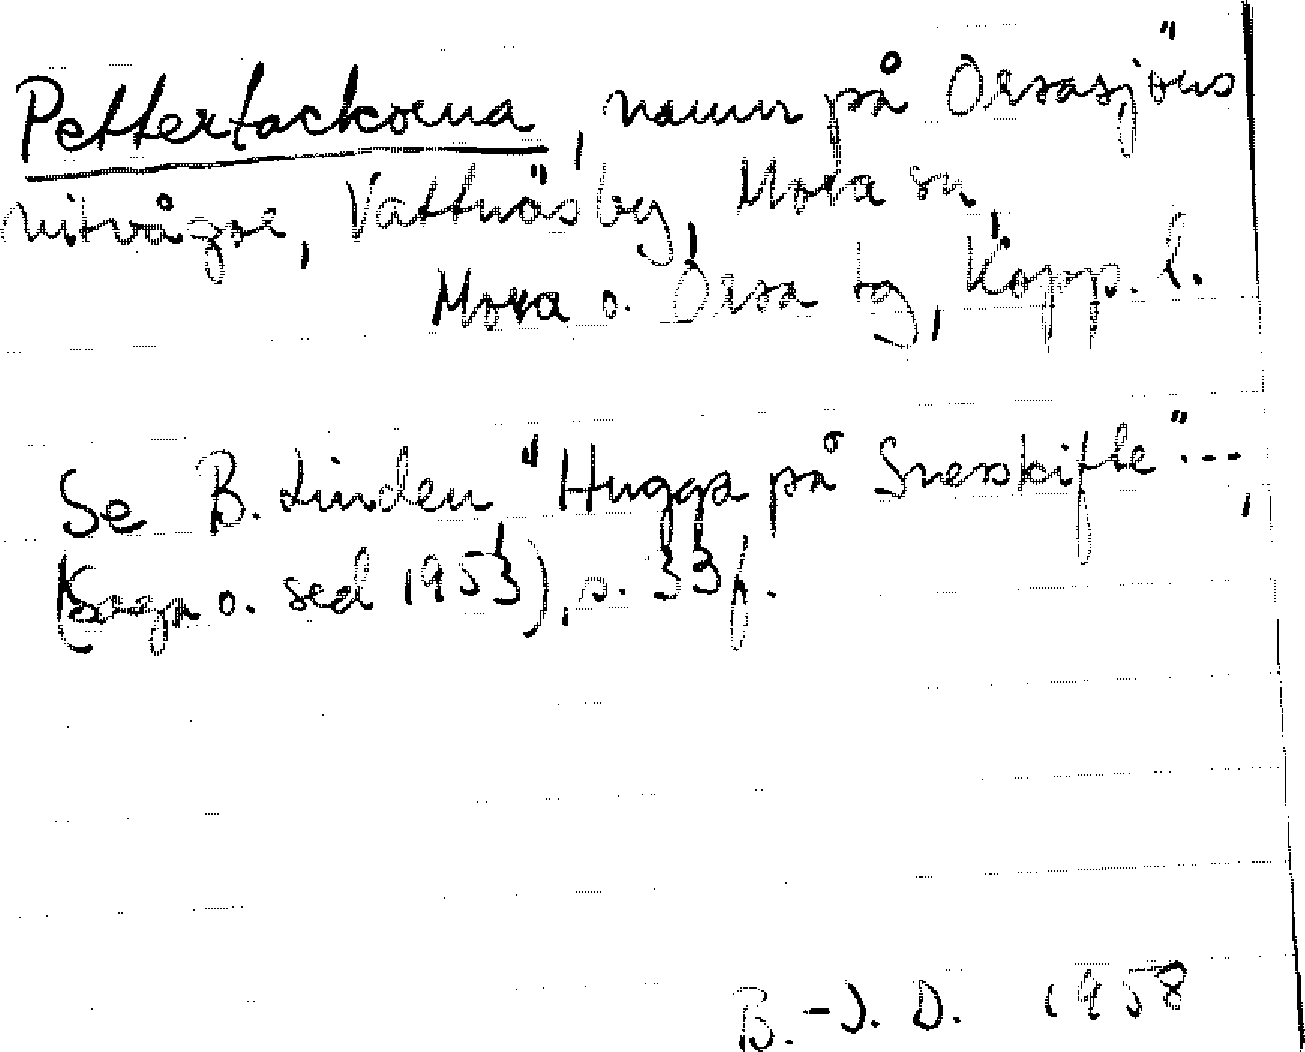 Pettertackorna, namn på Orsasjöns
vitvågor, Vattnäs by, Mora sn,
Mora o. Orsa tg, Kopp. l.
Se B. Linden "Hugga på Sverskifte"...,
(Sagn o. sed 1953), s. 33f.
B.-J. D. 1958